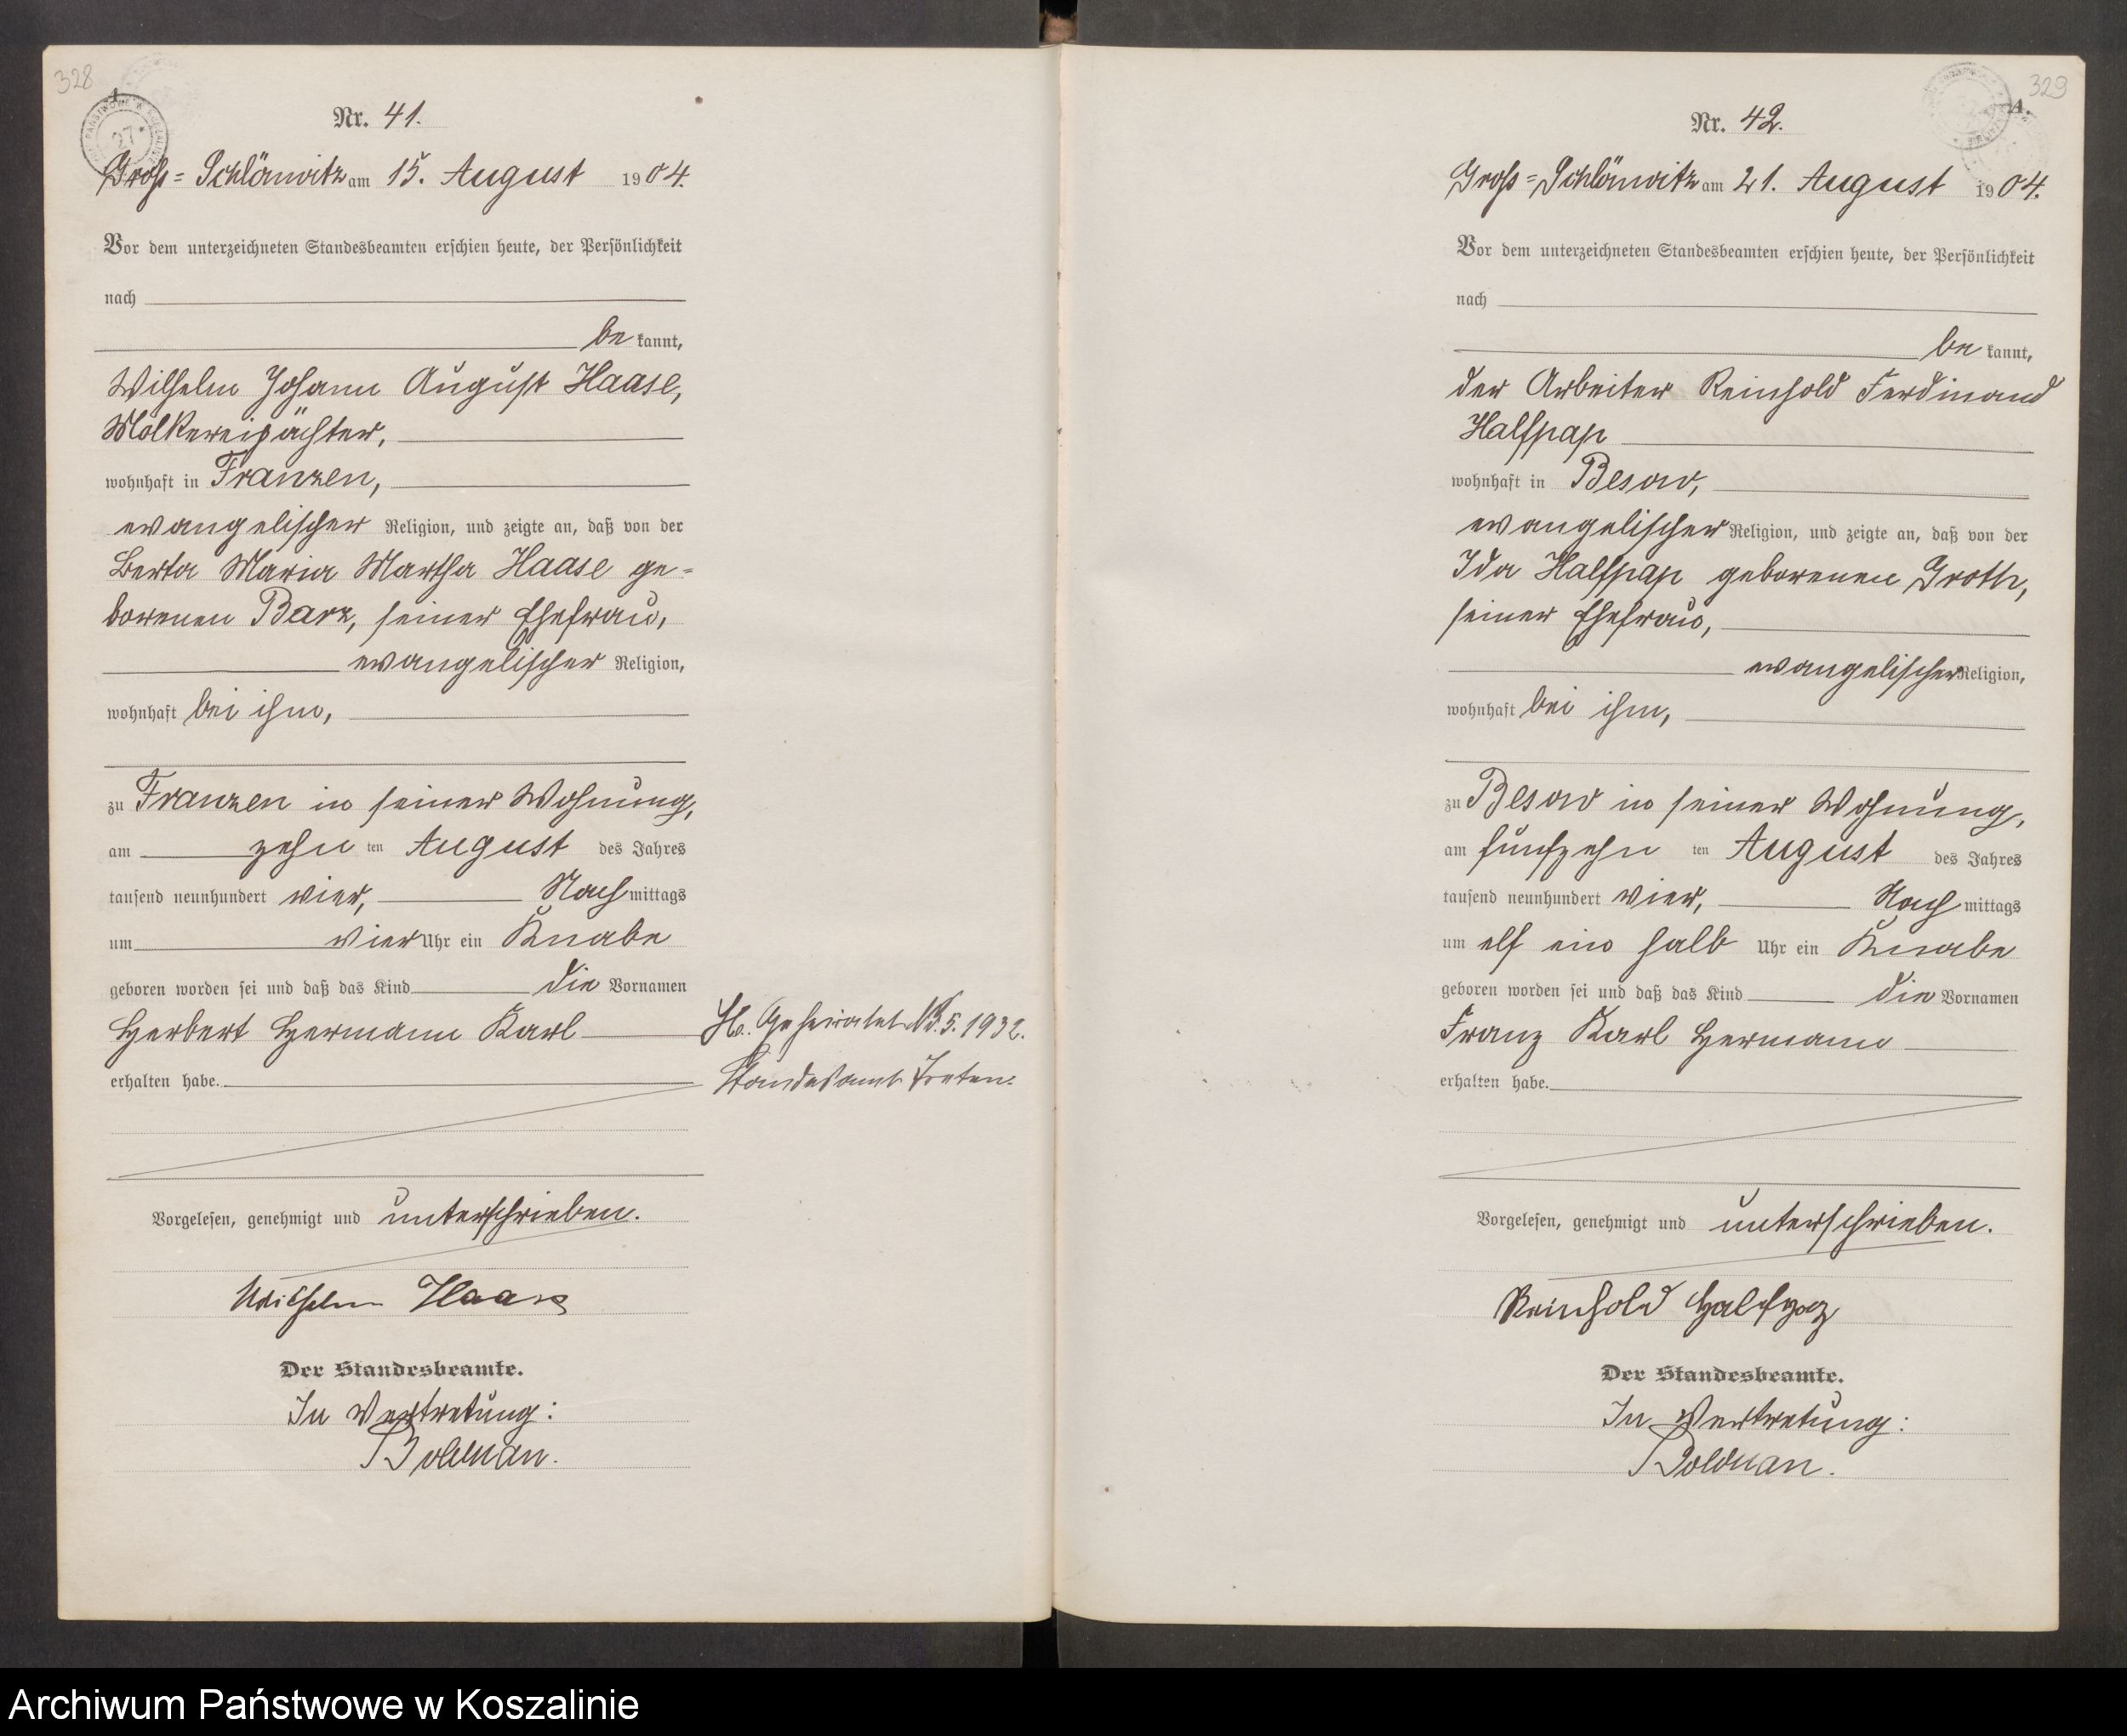 328
Nr. 41.
Groß=Schlönwitz am 15. August 1904.
Vor dem unterzeichneten Standesbeamten erschien heute, der Persönlichkeit
nach
be kannt,
Wilhelm Johann August Haase,
Molkereipächter,
wohnhaft in Franzen,
evangelischer Religion, und zeigte an, daß von der
Berta Maria Martha Haase ge=
borenen Barz, seiner Ehefrau,
evangelischer Religion,
wohnhaft bei ihm,
zu Franzen in seiner Wohnung,
am zehn ten August des Jahres
tausend neunhundert vier, Nach mittags
um vier Uhr ein Knabe
geboren worden sei und daß das Kind die Vornamen
Herbert Hermann Karl
erhalten habe.
Vorgelesen, genehmigt und unterschrieben.
Wilhelm Haase
Der Standesbeamte.
In Vertretung:
Bolduan.
Geheiratet 5. 1932.
Standesamt Treten.
329
A.
Nr. 42.
Groß=Schlönwitz am 21. August 1904.
Vor dem unterzeichneten Standesbeamten erschien heute, der Persönlichkeit
nach
be kannt,
der Arbeiter Reinhold Ferdinand
Halfpap
wohnhaft in Besow,
evangelischer Religion, und zeigte an, daß von der
Ida Halfpap geborenen Groth,
seiner Ehefrau,
evangelischer Religion,
wohnhaft bei ihm,
zu Besow in seiner Wohnung,
am fünfzehn ten August des Jahres
tausend neunhundert vier, Nach mittags
um elf ein halb Uhr ein Knabe
geboren worden sei und daß das Kind die Vornamen
Franz Karl Hermann
erhalten habe.
Vorgelesen, genehmigt und unterschrieben.
Reinhold Halfpap
Der Standesbeamte.
In Vertretung:
Bolduan.
Archiwum Państwowe w Koszalinie